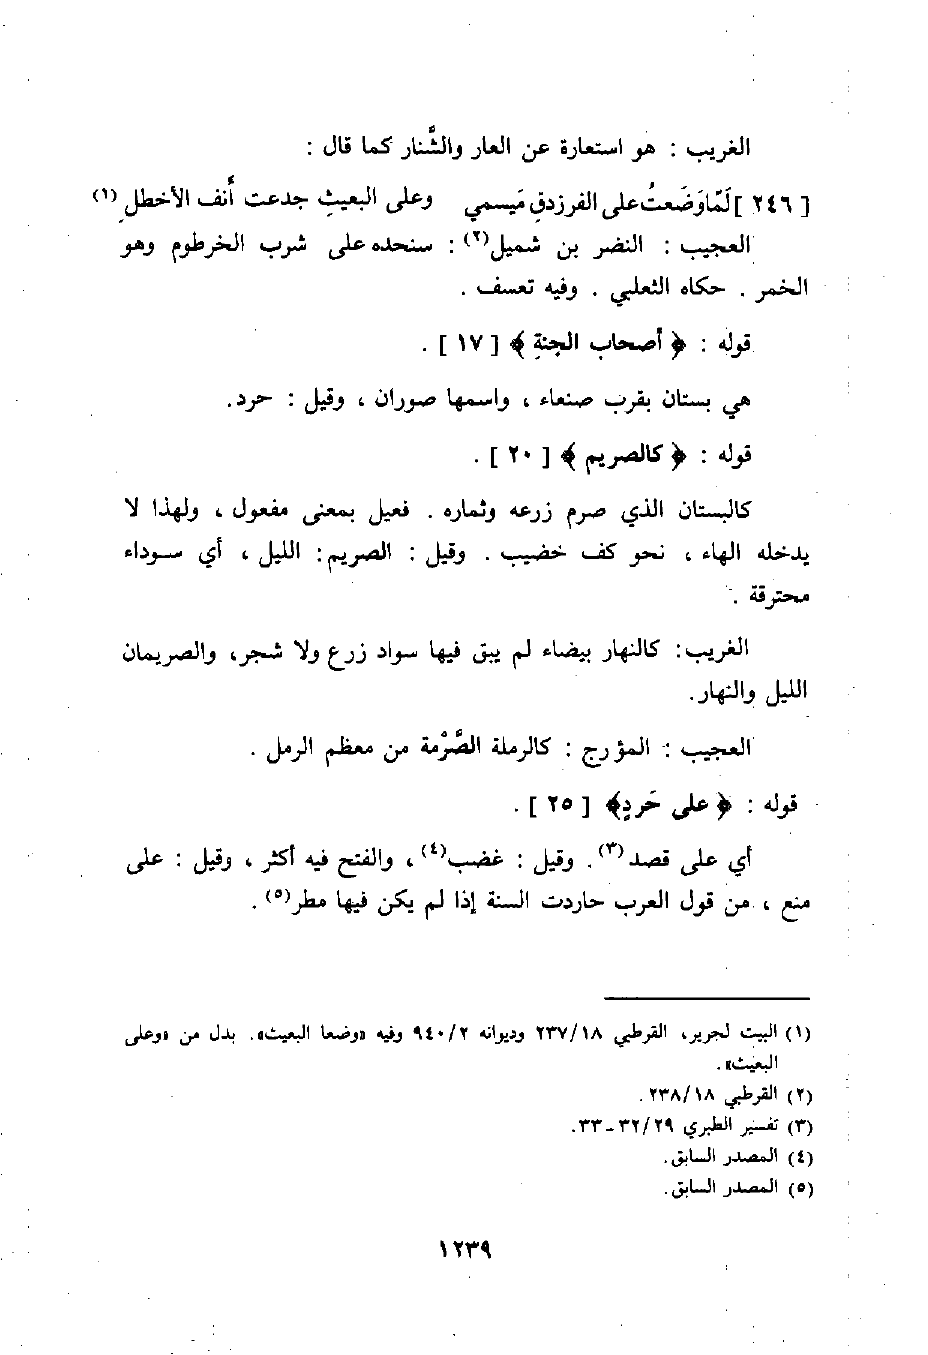 الغريب : هو استعارة عن العار والشَّنار كما قال :
[ ٢٤٦ ] لَمّا وَضَعتُ على الفرزدقِ مَيسمي وعلى البعيثِ جدعت أنف الأخطلِ (١)
العجيب : النضر بن شميل(٢) : سنحده على شرب الخرطوم وهو
الخمر . حكاه الثعلبي . وفيه تعسف .
قوله : ﴿ أصحاب الجنةِ ﴾ [ ١٧ ] .
هي بستان بقرب صنعاء ، واسمها صوران ، وقيل : حرد.
قوله : ﴿ كالصريم ﴾ [ ٢٠ ] .
كالبستان الذي صرم زرعه وثماره . فعيل بمعنى مفعول ، ولهذا لا
يدخله الهاء ، نحو كف خضيب . وقيل : الصريم : الليل ، أي سوداء
محترقة .
الغريب : كالنهار بيضاء لم يبق فيها سواد زرع ولا شجر، والصريمان
الليل والنهار.
العجيب : المؤرج : كالرملة الصَّرْمة من معظم الرمل .
قوله : ﴿ على حَردٍ﴾ [ ٢٥ ] .
أي على قصد(٣) . وقيل : غضب(٤) ، والفتح فيه أكثر ، وقيل : على
منع ، من قول العرب حاردت السنة إذا لم يكن فيها مطر(٥) .
(١) البيت لجرير، القرطبي ٢٣٧/١٨ وديوانه ٩٤٠/٢ وفيه «وضعا البعيث». بدل من «وعلى
البعيث» .
(٢) القرطبي ٢٣٨/١٨ .
(٣) تفسير الطبري ٣٢/٢٩ ـ ٣٣.
(٤) المصدر السابق.
(٥) المصدر السابق.
١٢٣٩